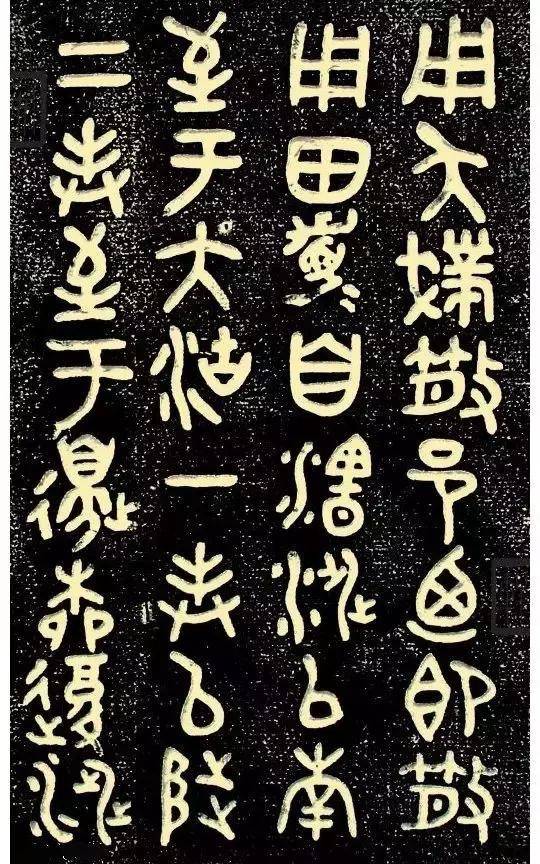 用夨撲散邑廼即散
用田眉自瀗涉以南
至于大沽一封以陟
二封至于邊柳復涉